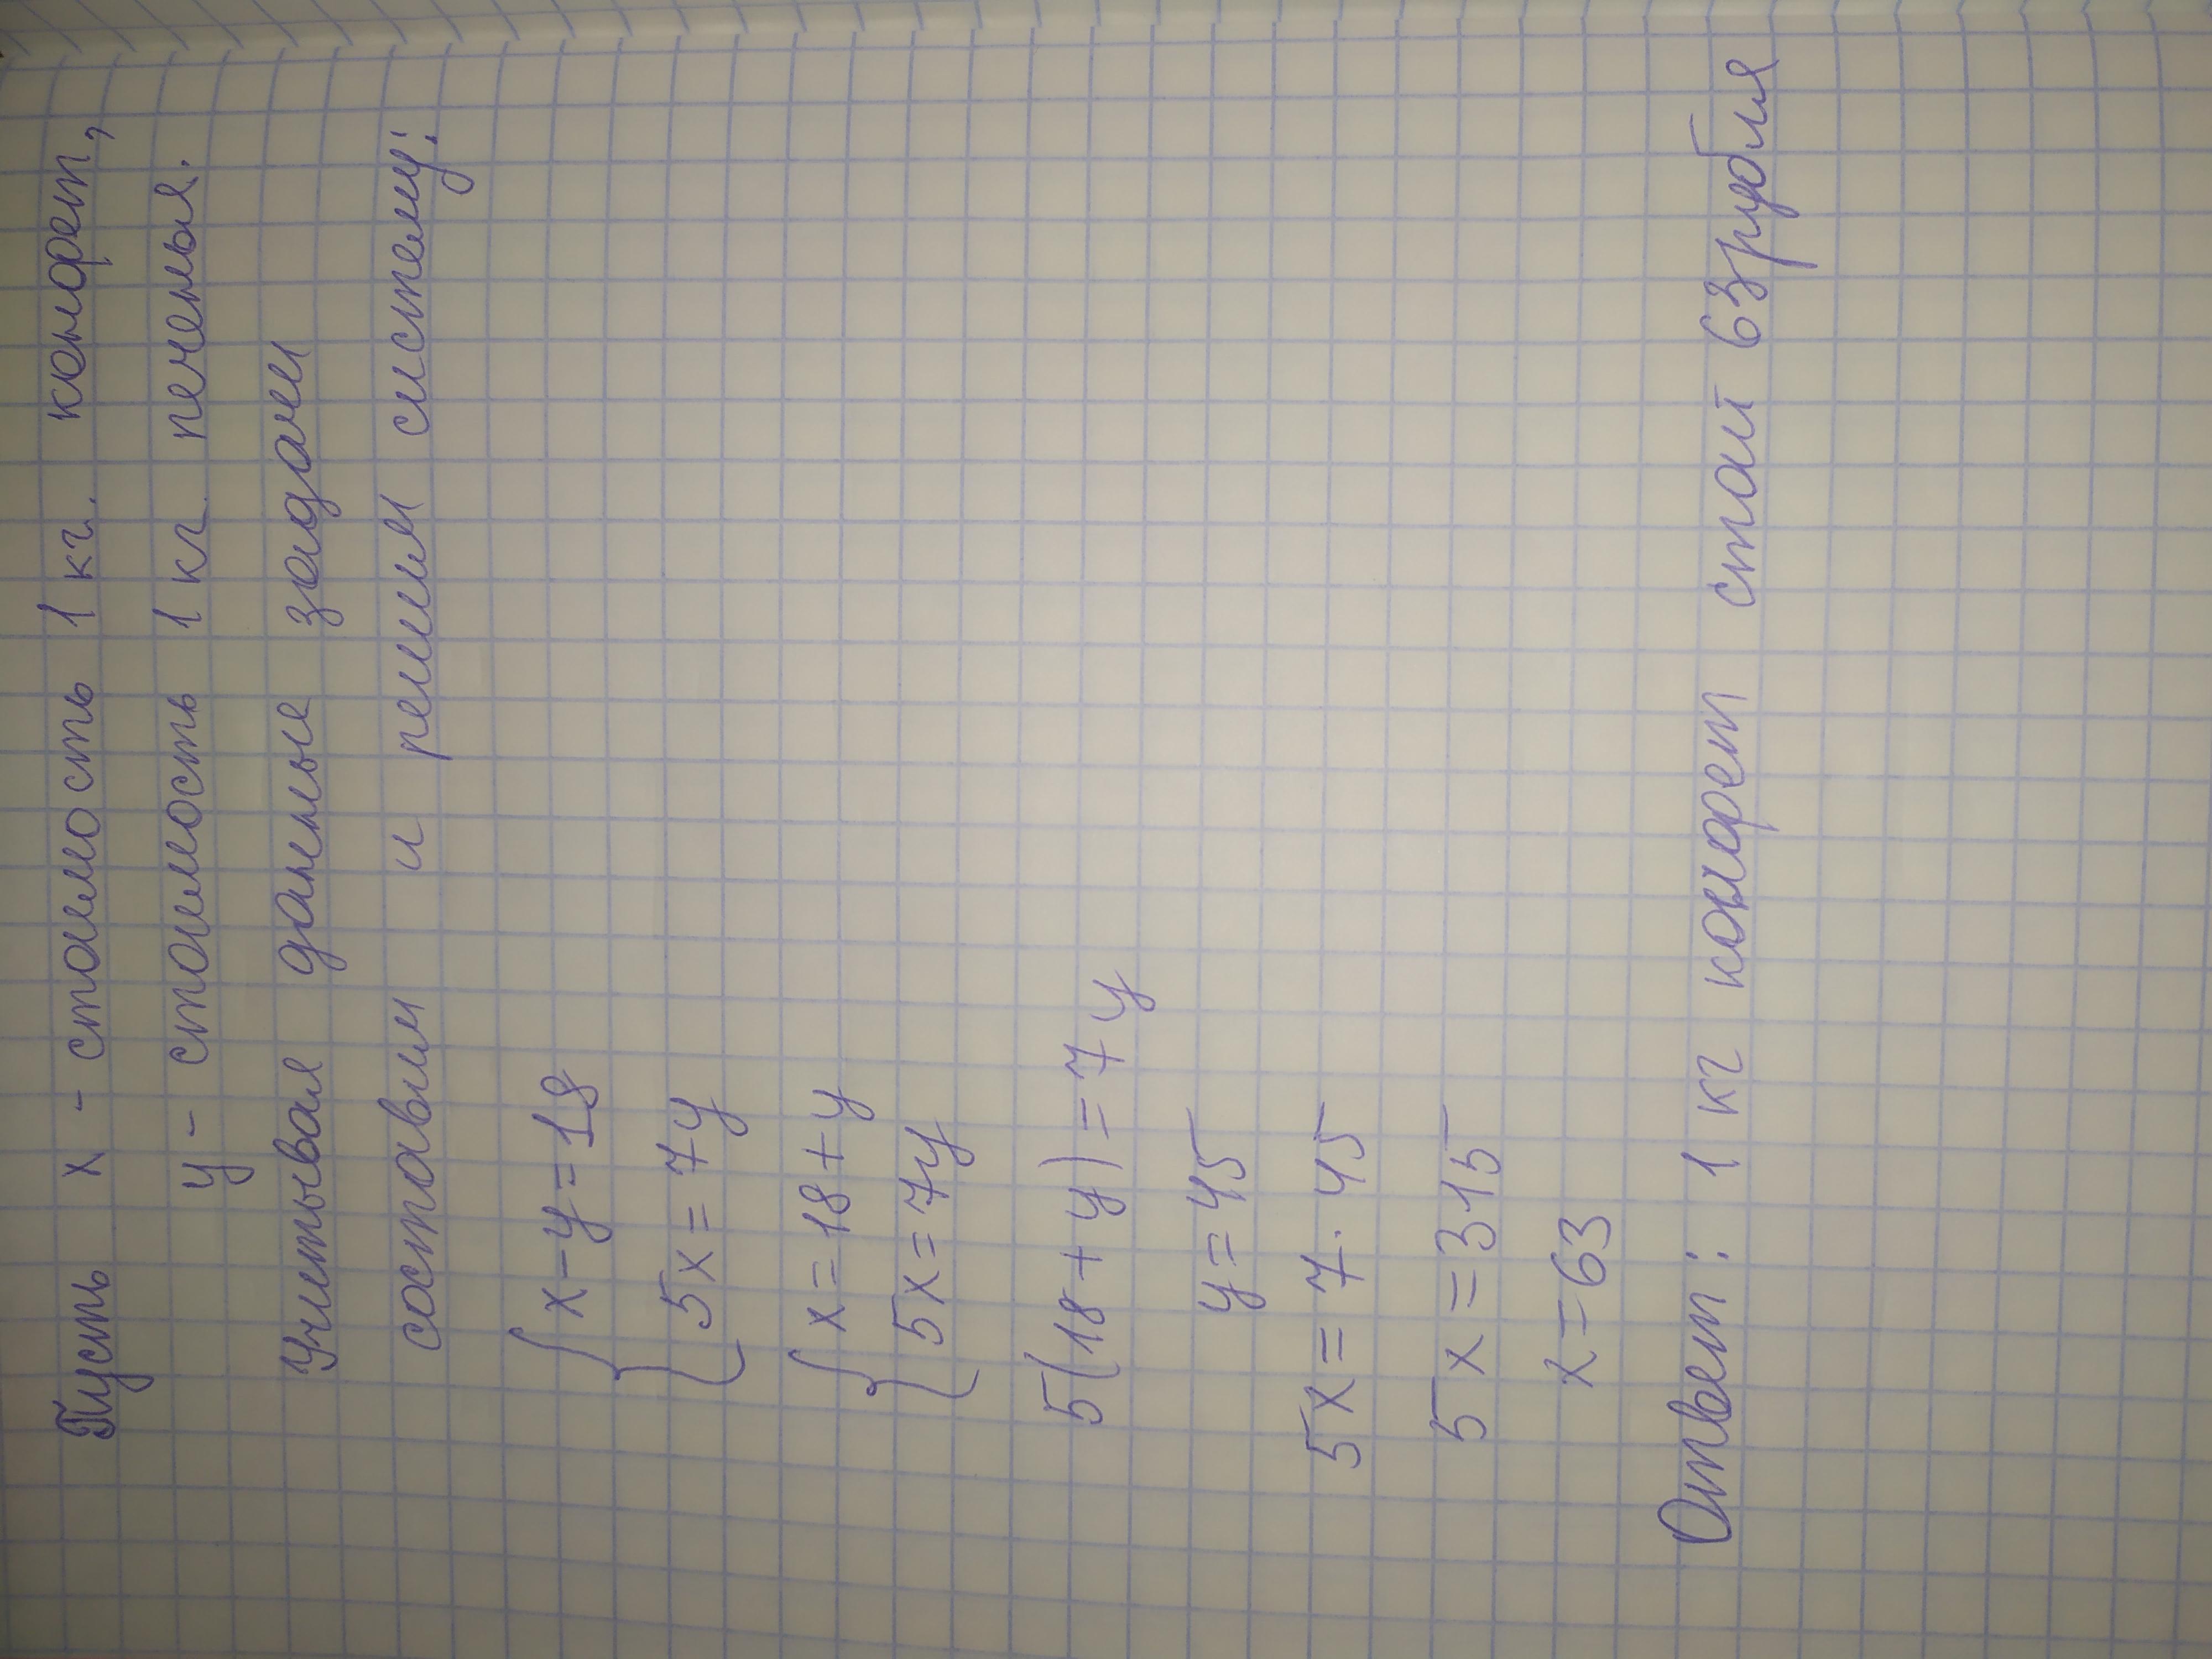 Пусть х - стоимость 1 кг. конфет,
у - стоимость 1 кг печенья.
Учитывая данные задачи
составим и решим систему:
{ х - у = 18
5х = 7у
{ х = 18 + у
5х = 7у
5(18 + у) = 7у
у = 45
5х = 7 · 45
5х = 315
х = 63
Ответ: 1 кг конфет стоит 63 рубля